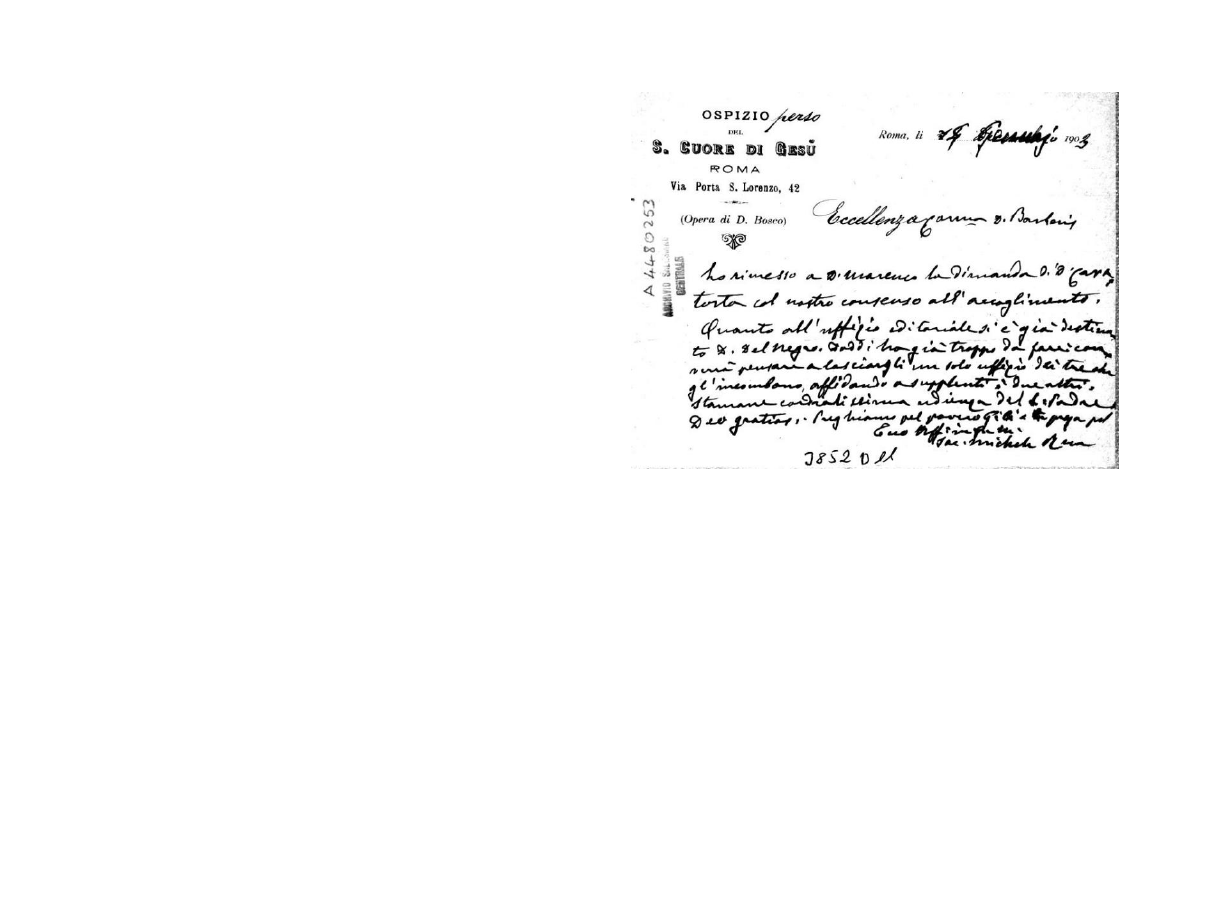 OSPIZIO perso
DEL
S. CUORE DI GESÙ
ROMA
Via Porta S. Lorenzo, 42
(Opera di D. Bosco)
Roma, li 1903
A4480253
ARCHIVIO SALESIANO
CENTRALE
D. Barberis
ho rimesso a D. Marenco la dimanda di D. Cava
torta col nostro consenso all'accoglimento.
Quanto all'uffizio editoriale si è già destina
to D. Del Negro. ha già troppo da fare; con
verrà pensare a lasciargli un solo uffizio dei tre che
gl'incombano, affidando a supplenti i due altri.
Stamane cordialissima udienza del S. Padre
Deo gratias. Preghiamo pel povero e prega pel
tuo
Sac. Michele Rua
3852